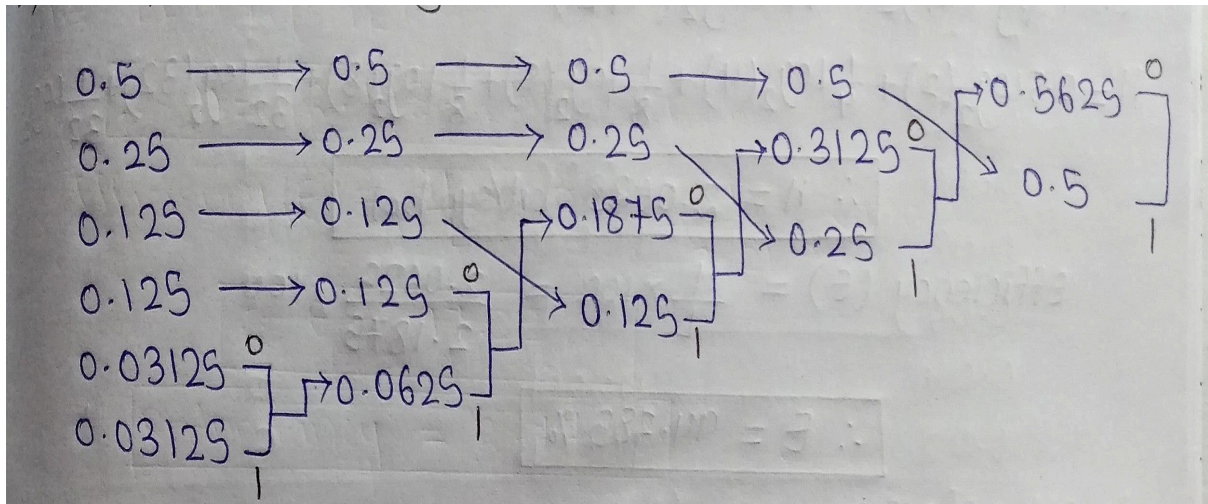 0.5 → 0.5 → 0.5 → 0.5 → 0.5625 0
0.25 → 0.25 → 0.25 → 0.3125 0 0.5 1
0.125 → 0.125 → 0.1875 0 → 0.25 1
0.125 → 0.125 0 → 0.125 1
0.03125 0 → 0.0625 1
0.03125 1